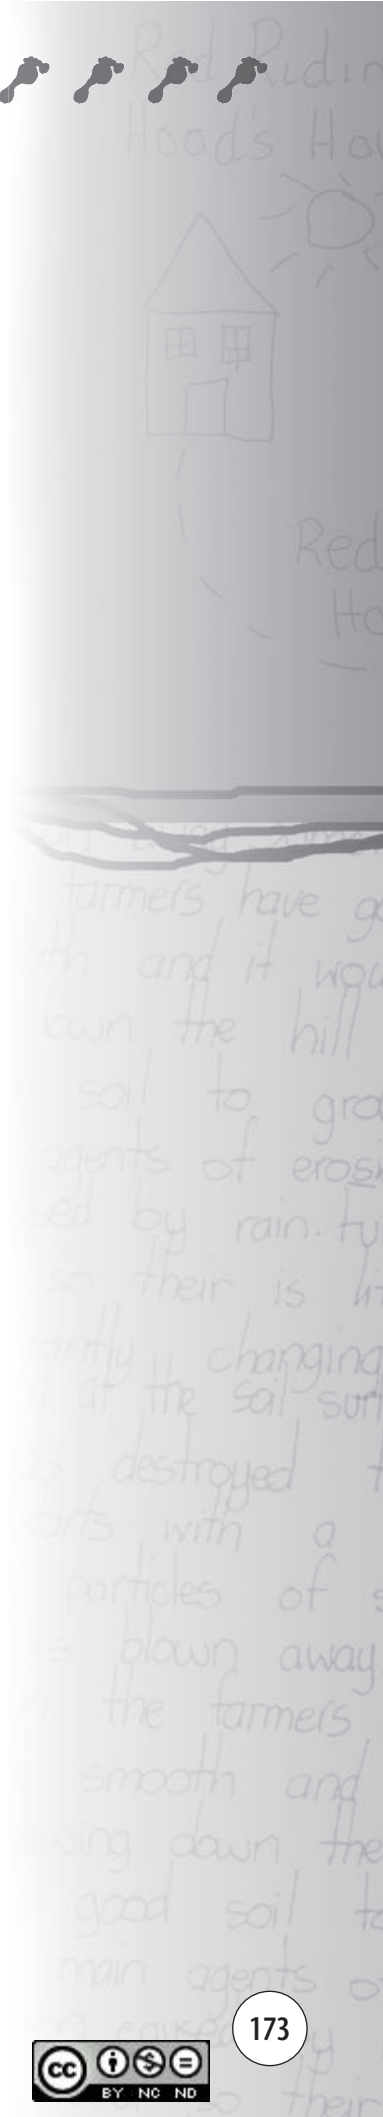 Red Ridin
Hood's Hou
Red
Ho
farmers have go
and it wou
down the hill
soil to gro
agents of erosi
by rain. tu
so their is lit
changing
at the soil surf
destroyed t
with a
particles of s
blown away
the farmers
smooth and
down the
good soil to
main agents o
173
by
so their
cc
BY NC ND